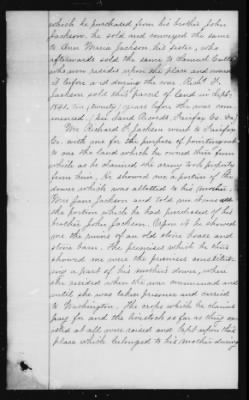 which he purchased from his brother John
Jackson. he sold and conveyed the same
to Ann Maria Jackson his sister, who
afterwards sold the same to Samuel
who now resides upon the place and owned
it before and during the war. Rich. F.
Jackson sold this parcel of land in Sept.
1841, (twenty) years before the war com-
menced, (see Land Records Fairfax Co. Va)
Mr. Richard F. Jackson went to Fairfax
Co. with me for the purpose of pointing out
to me the land which he owned there from
which as he claimed the army took property
from him. He showed me a portion of the
dower which was allotted to his mother,
Jane Jackson and told me
the portion which he had purchased of his
brother John Jackson. Upon it he showed
me the ruins of an old stone house and
stone barn. The premises which he thus
showed me were the premises constitut-
ing a part of his mothers dower, where
she resided when the war commenced and
until she was taken prisoner and carried
to Washington. The crops which he claims
pay for and the livestock so far as they ex-
isted at all were raised and kept upon this
place which belonged to his mother during